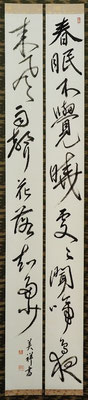 春眠不覺曉處々聞啼鳥夜
来風雨聲花落知多少 美祥書